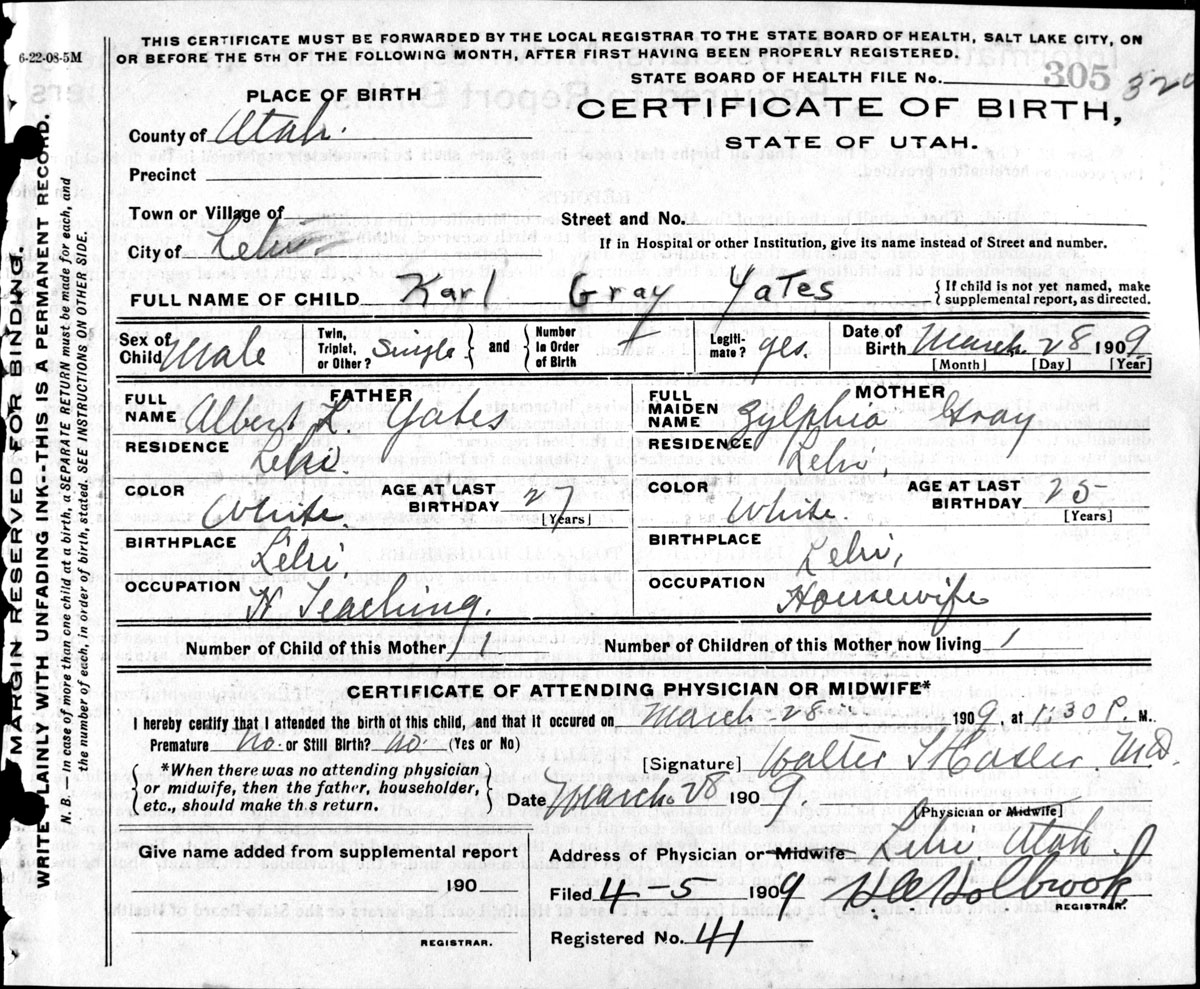 6-22-08-5M
THIS CERTIFICATE MUST BE FORWARDED BY THE LOCAL REGISTRAR TO THE STATE BOARD OF HEALTH, SALT LAKE CITY, ON
OR BEFORE THE 5TH OF THE FOLLOWING MONTH, AFTER FIRST HAVING BEEN PROPERLY REGISTERED.
STATE BOARD OF HEALTH FILE No. 305 320
PLACE OF BIRTH
CERTIFICATE OF BIRTH,
STATE OF UTAH.
County of Utah.
Precinct
Town or Village of
Street and No.
City of Lehi.
If in Hospital or other Institution, give its name instead of Street and number.
FULL NAME OF CHILD Karl Gray Yates { If child is not yet named, make supplemental report, as directed.
Sex of Child Male Twin, Triplet, or Other? Single } and { Number in Order of Birth 1 Legiti-mate? yes. Date of Birth March 28 1909
[Month] [Day] [Year]
FATHER
FULL NAME Albert L. Yates
RESIDENCE Lehi
COLOR White. AGE AT LAST BIRTHDAY 27 [Years]
BIRTHPLACE Lehi,
OCCUPATION Teaching.
MOTHER
FULL MAIDEN NAME Zylphia Gray
RESIDENCE Lehi,
COLOR White. AGE AT LAST BIRTHDAY 25 [Years]
BIRTHPLACE Lehi,
OCCUPATION Housewife
Number of Child of this Mother 1 Number of Children of this Mother now living 1
CERTIFICATE OF ATTENDING PHYSICIAN OR MIDWIFE*
I hereby certify that I attended the birth of this child, and that it occured on March-28 1909, at 1:30 P. M.
Premature no. or Still Birth? no. (Yes or No)
[Signature] Walter T Hasler MD.
{ *When there was no attending physician
or midwife, then the father, householder,
etc., should make this return. }
Date March 28 1909.
[Physician or Midwife]
Give name added from supplemental report
190
REGISTRAR.
Address of Physician or Midwife Lehi Utah
Filed 4-5 1909 Holbrook
REGISTRAR.
Registered No. 41
MARGIN RESERVED FOR BINDING.
WRITE PLAINLY WITH UNFADING INK-THIS IS A PERMANENT RECORD.
N. B. in case of more than one child at a birth, a SEPARATE RETURN must be made for each, and
the number of each, in order of birth, stated. SEE INSTRUCTIONS ON OTHER SIDE.